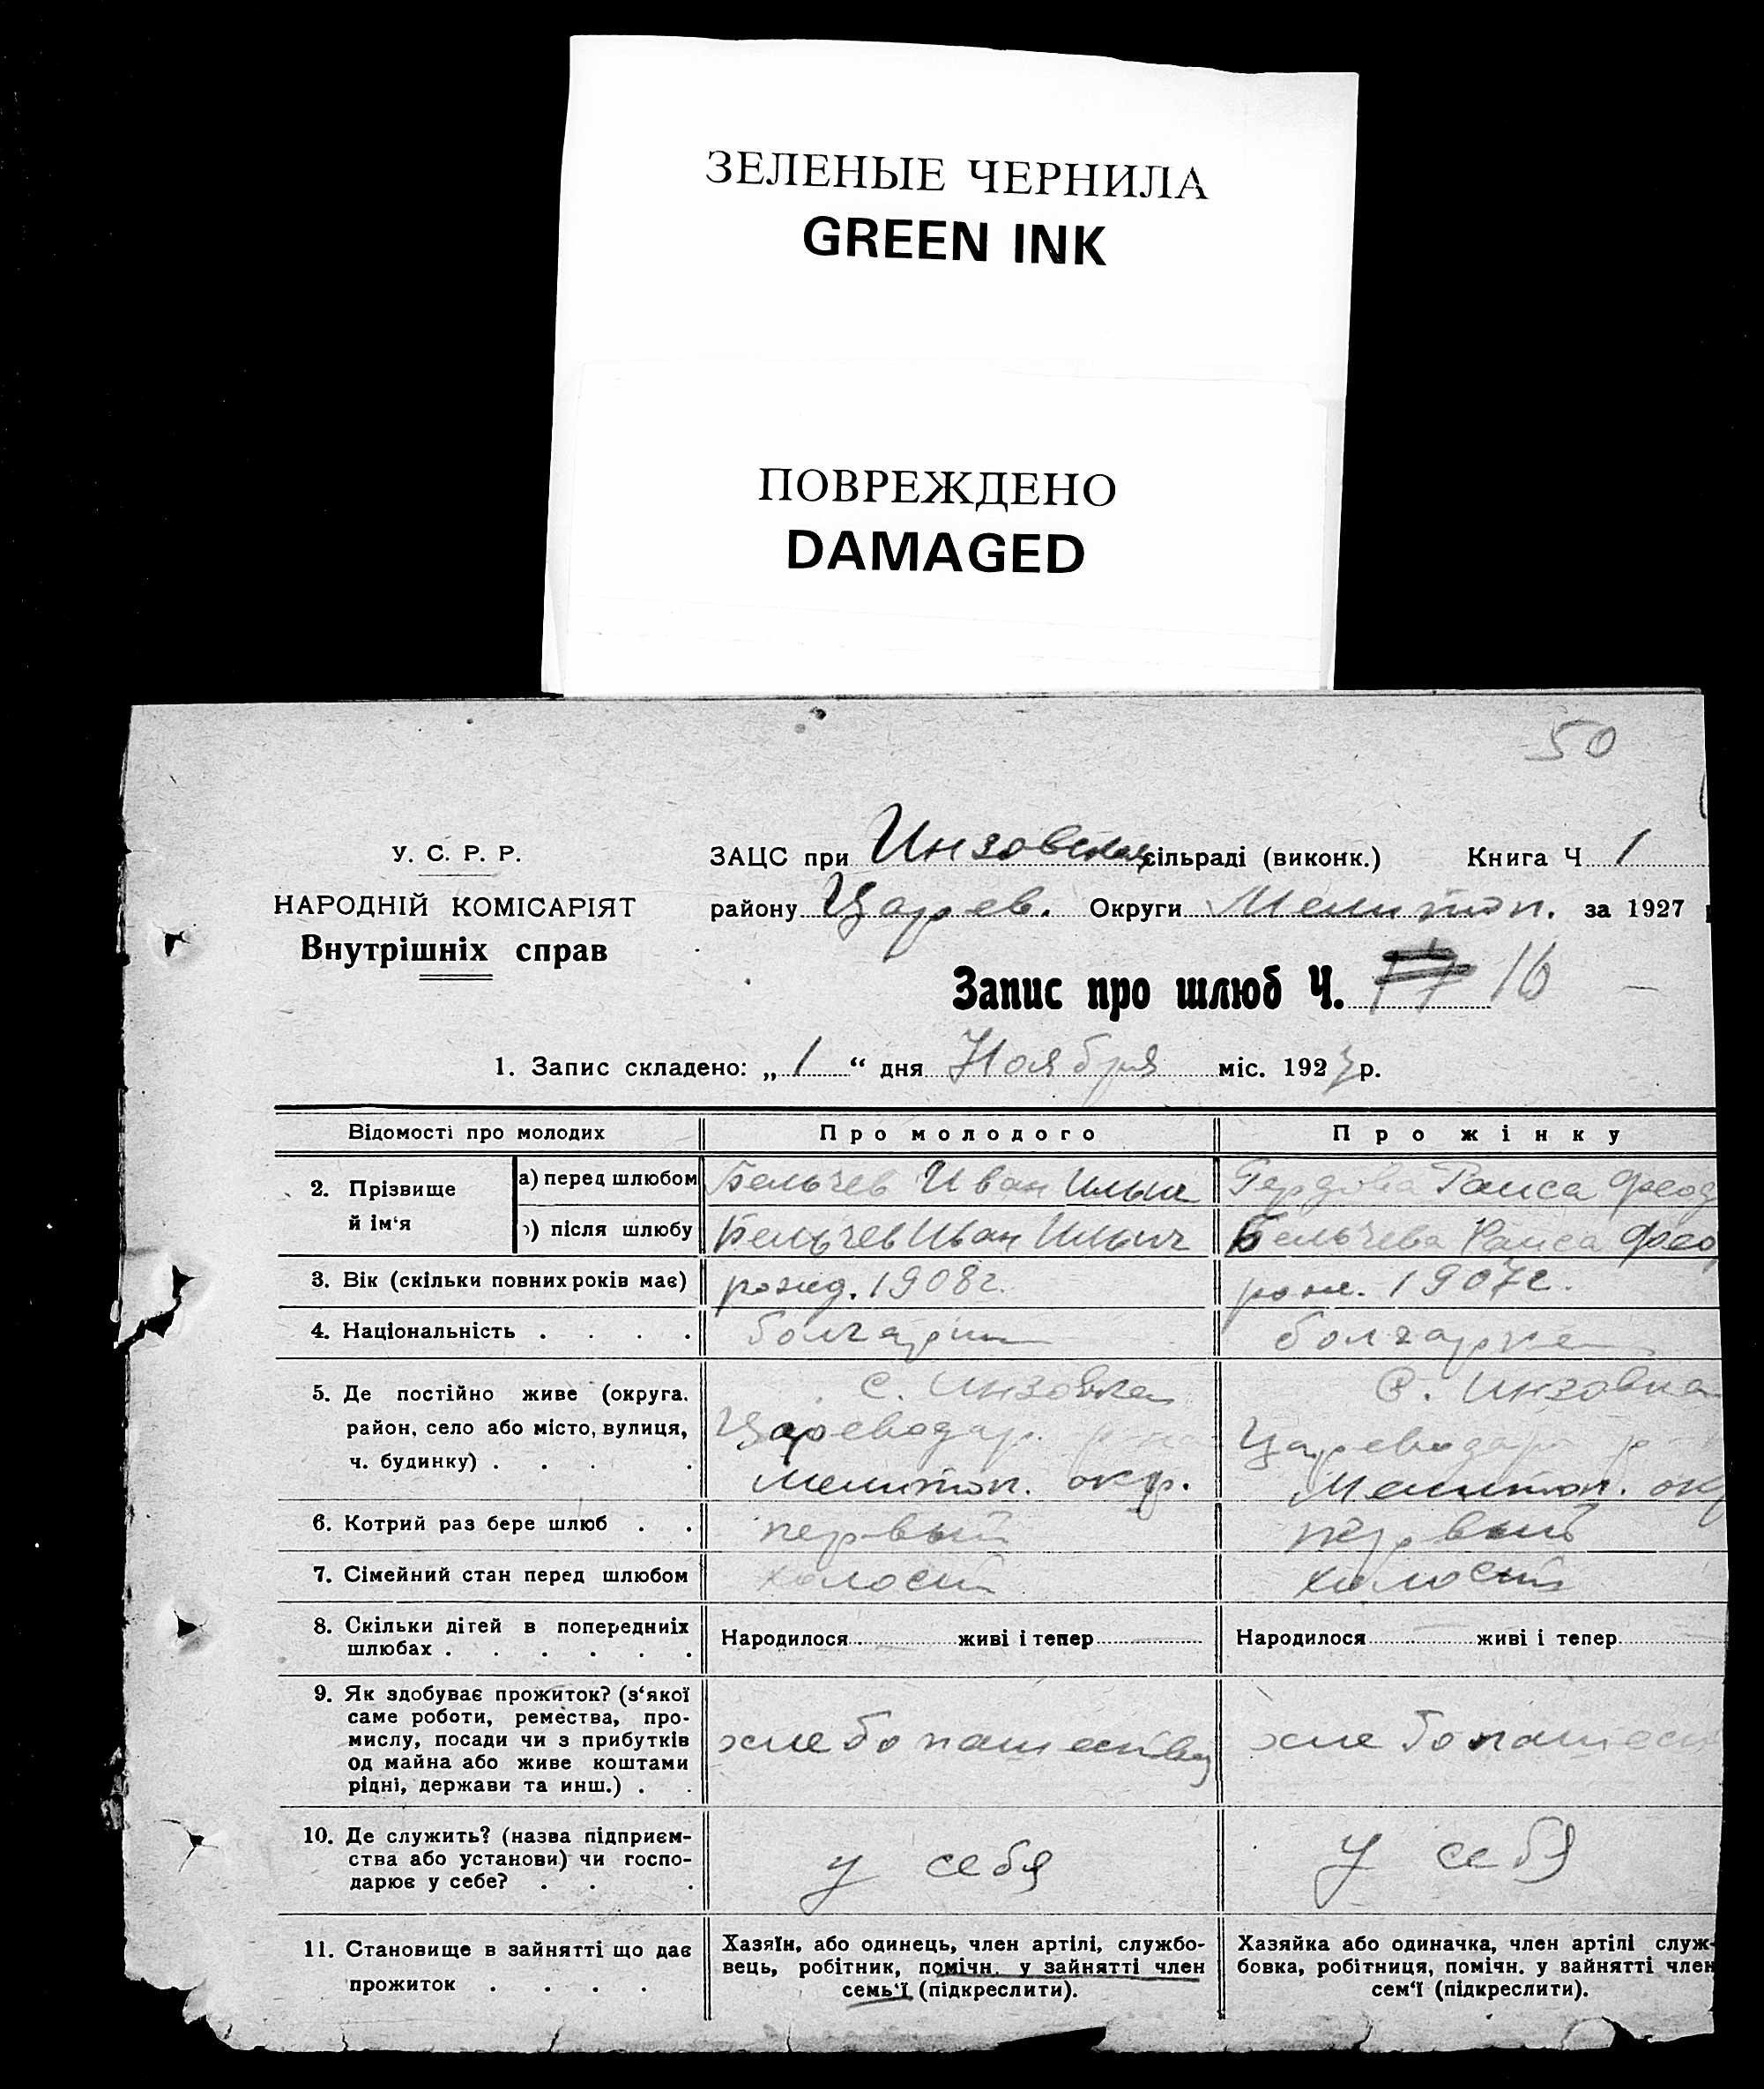 ЗЕЛЕНЫЕ ЧЕРНИЛА
GREEN INK
ПОВРЕЖДЕНО
DAMAGED
50
У. С. Р. Р.
НАРОДНІЙ КОМІСАРІЯТ
Внутрішніх справ
ЗАЦС при Инзовской сільраді (виконк.) Книга Ч 1
району Царев. Округи Мелитоп. за 1927
Запис про шлюб Ч. 16
1. Запис складено: „ 1 “ дня Ноября міс. 1927 р.
Відомості про молодих
Про молодого
Про жінку
2. Прізвище й ім‘я
а) перед шлюбом
Бельчев Иван Ильич
Раиса Феод
б) після шлюбу
Бельчев Иван Ильич
Бельчева Раиса Фео
3. Вік (скільки повних років має)
рожд. 1908 г.
рож. 1907 г.
4. Національність . . . .
болгарин
болгарка
5. Де постійно живе (округа.
район, село або місто, вулиця,
ч. будинку) . . . .
с. Инзовка
Цареводар. р-на
Мелитоп. окр.
с. Инзовка
Цареводар р
Мелитоп. окр
6. Котрий раз бере шлюб . .
первый
первый
7. Сімейний стан перед шлюбом
холост
холост
8. Скільки дітей в попередниіх
шлюбах . . . . . .
Народилося живі і тепер
Народилося живі і тепер
9. Як здобуває прожиток? (з‘якої
саме роботи, ремества, про-
мислу, посади чи з прибутків
од майна або живе коштами
рідні, держави та инш.) . .
хлебопашество
хлебопашест
10. Де служить? (назва підприєм-
ства або установи) чи госпо-
дарює у себе? . . .
у себя
у себя
11. Становище в зайнятті що дає
прожиток . . . .
Хазяїн, або одинець, член артілі, службо-
вець, робітник, помічн. у зайнятті член
семь‘ї (підкреслити).
Хазяйка або одиначка, член артілі служ-
бовка, робітниця, помічн. у зайнятті член
сем‘ї (підкреслити).